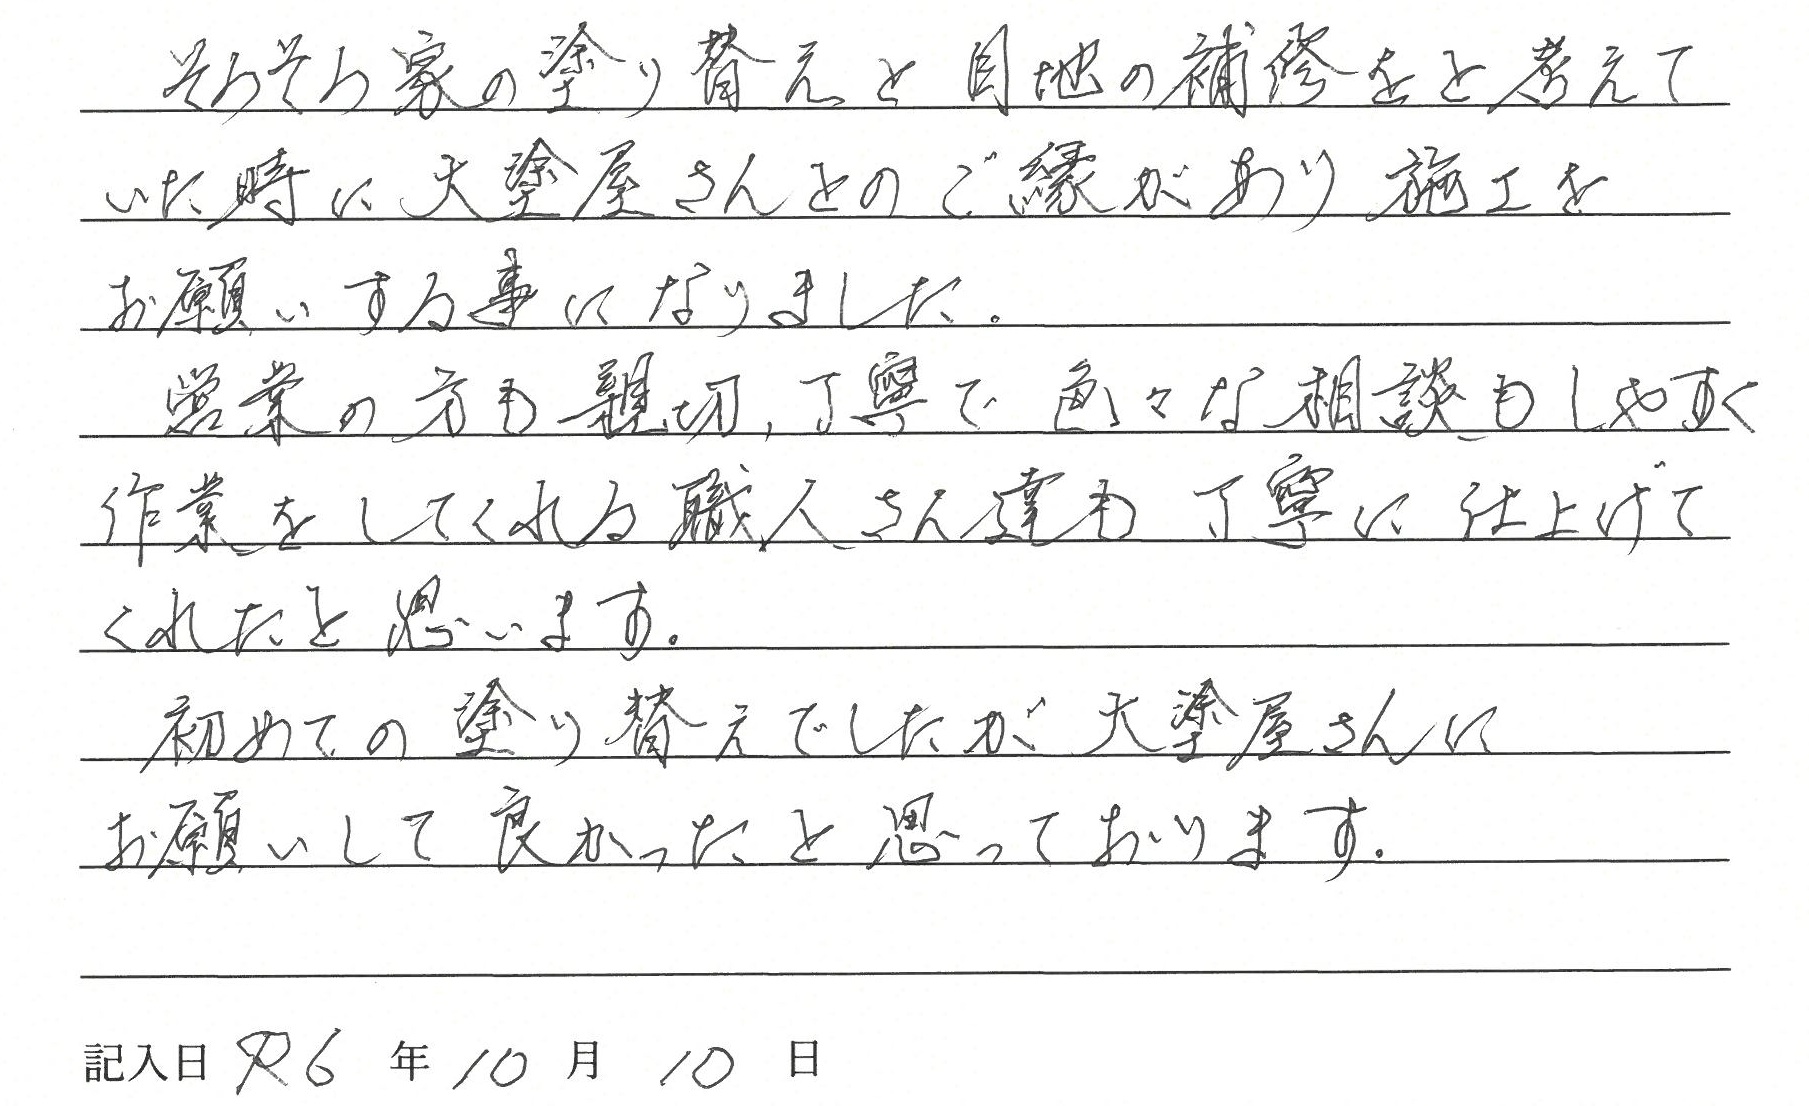 そろそろ家の塗り替えと目地の補修をと考えて
いた時に大塗屋さんとのご縁があり施工を
お願いする事になりました。
営業の方も親切,丁寧で色々な相談もしやすく
作業をしてくれる職人さん達も丁寧に仕上げて
くれたと思います。
初めての塗り替えでしたが大塗屋さんに
お願いして良かったと思っております。
記入日 R6 年 10 月 10 日